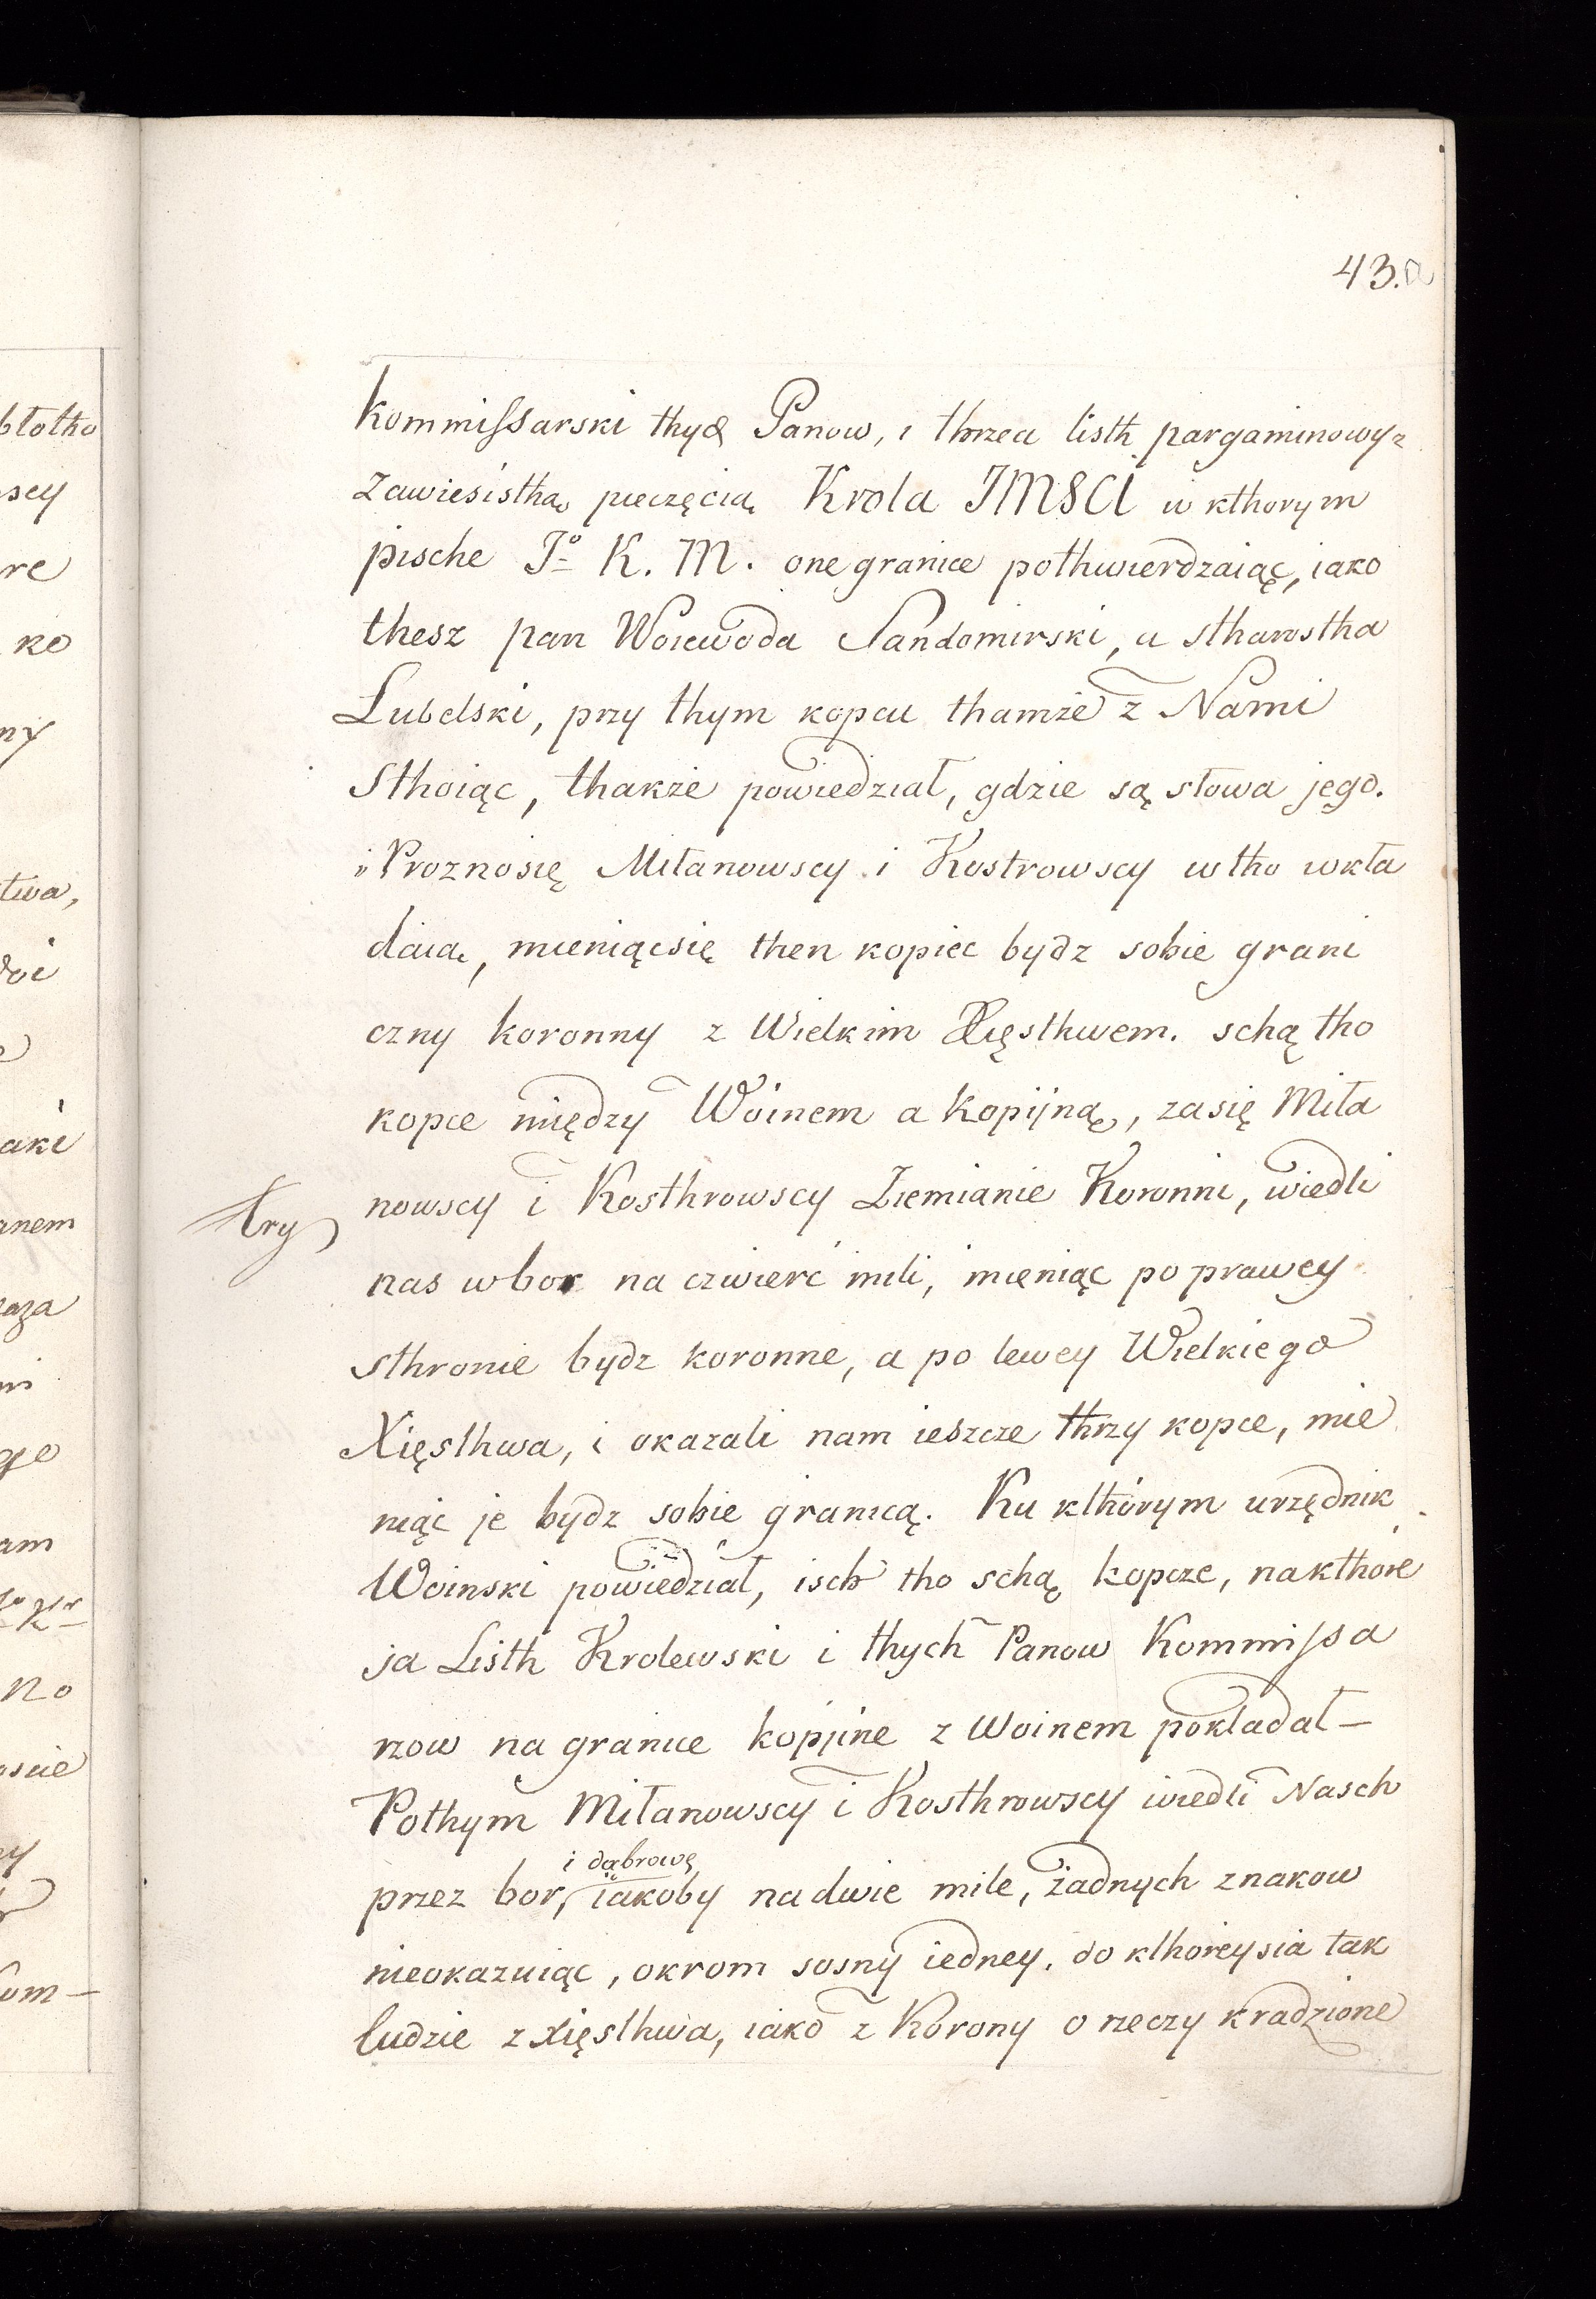 43.a
kommissarski thych Panow, i thrzeci listh pargaminowy z
zawiesistha, pieczęcią Krola JMSCI w kthorym
pische Jº K. M. one granice pothwierdzaiąc, iako
thesz pan Woiewoda Sandomirski, a stharostha
Lubelski, przy thym kopcu thamże z Nami
sthoiąc, thakże powiedział, gdzie są słowa jego.
i Proznosię Miłanowscy i Kostrowscy wtho wkła
daią, mieniącsię then kopiec bydz sobie grani
czny koronny z Wielkim Xięsthwem. schą tho
kopce między Woinem a Kopijną, zasię Miła
nowscy i Kosthrowscy Ziemianie Koronni, wiedli
try
nas wbor na czwierć mili, mieniąc po prawey
sthronie bydz koronne, a po lewey Wielkiego
Xięsthwa, i okazali nam ieszcze thrzy kopce, mie
niąc je bydz sobie granicą. Ku kthórym urzędnik
Woinski powiedział, isch tho schą kopcze, nakthore
ja Listh Krolewski i thych Panow Kommissa
rzow na granice kopijne z Woinem pokladał—
Pothym Miłanowscy i Kosthrowscy wiedli Nasch
i dąbrowę
przez bor, iakoby na dwie mile, żadnych znakow
nieokazuiąc, okrom sosny iedney, do kthoreysia tak
ludzie z xięsthwa, iako z Korony o rzeczy kradzione
błotko
scy
re
ko
ny
twa,
aki
anem
aza
ge
am
no
oscie
om—